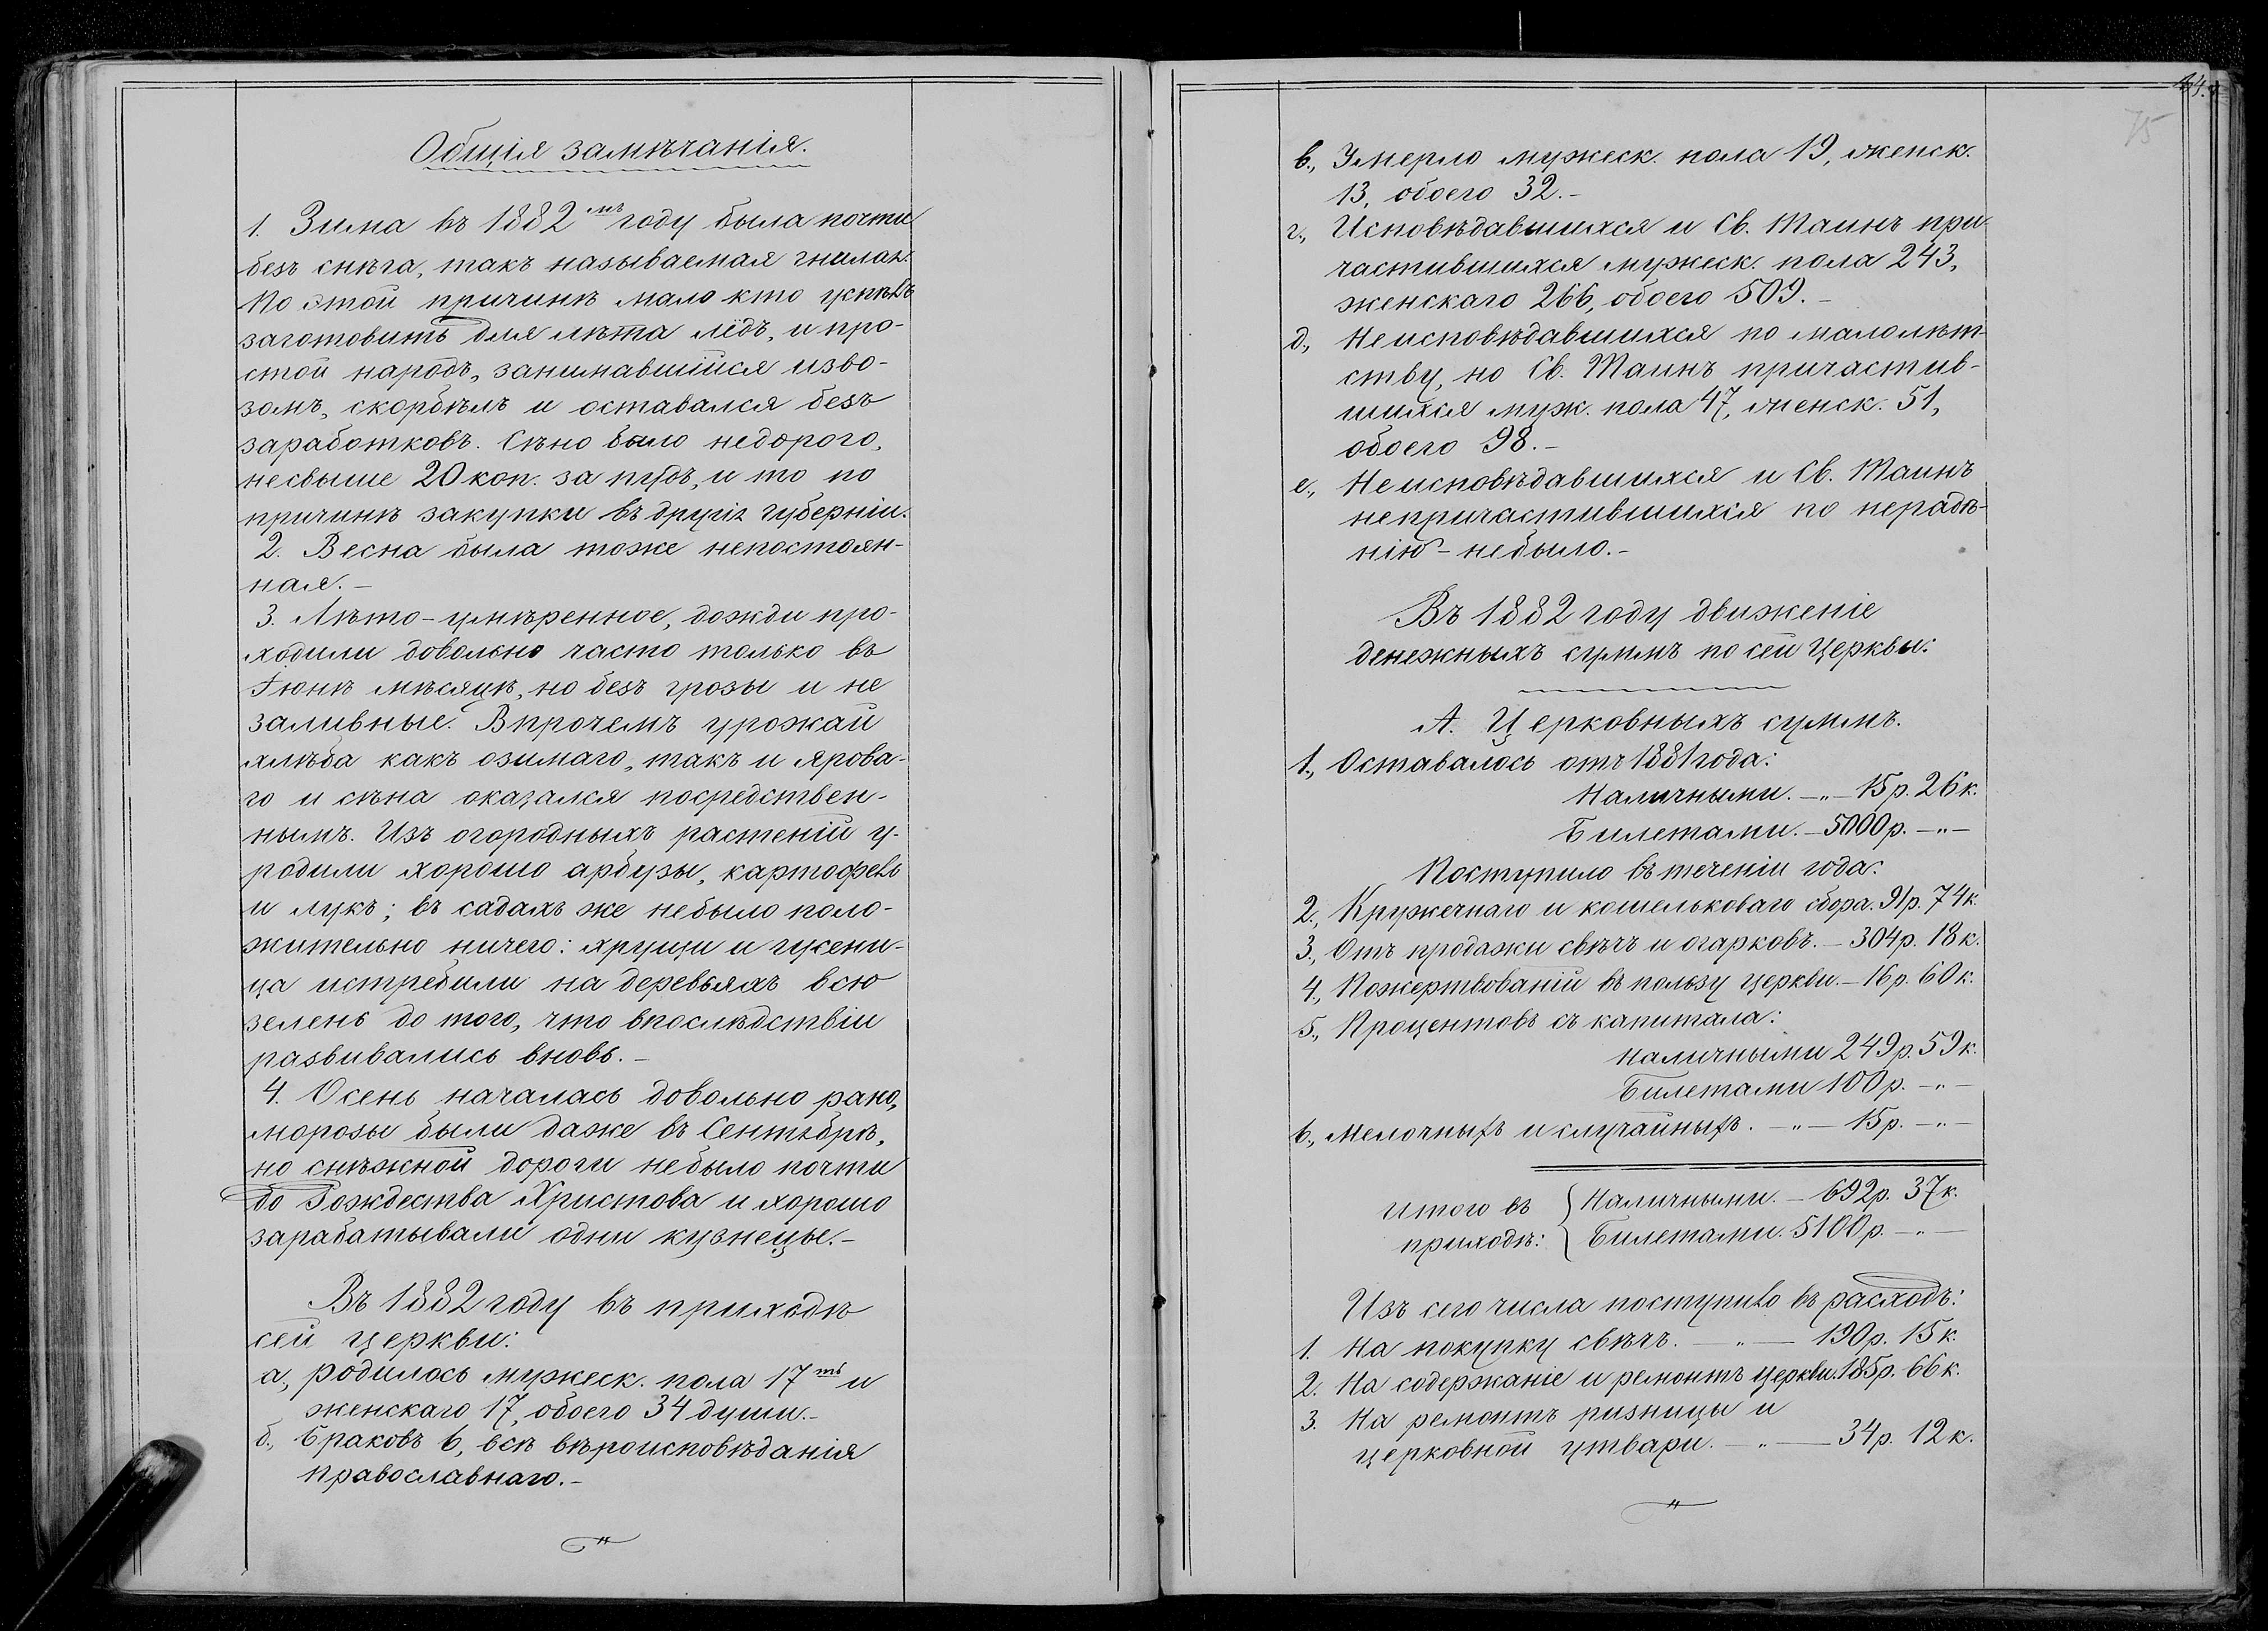 Общія замѣчанія.
1. Зима въ 1882мъ году была почти
безъ снѣга, такъ называемая гнилая.
По этой причинѣ мало кто успѣлъ
заготовить для лѣта лёдъ, и про-
стой народъ, занимавшійся изво-
зомъ, скорбѣлъ и оставался безъ
заработковъ. Сѣно было недорого,
несвыше 20 коп. за пудъ, и то по
причинѣ закупки въ другія губерніи.
2. Весна была тоже непостоян-
ная.–
3. Лѣто – умѣренное, дожди про-
ходили довольно часто только въ
Іюнѣ мѣсяцѣ, но безъ грозы и не
заливные. Впрочемъ урожай
хлѣба какъ озимаго, такъ и ярова-
го и сѣна оказался посредствен-
нымъ. Изъ огородныхъ растеній у-
родили хорошо арбузы, картофель
и лукъ; въ садахъ же небыло поло-
жительно ничего: хрущи и гусени-
ца истребили на деревьяхъ всю
зелень до того, что впослѣдствіи
развивались вновь.–
4. Осень началась довольно рано,
морозы были даже въ Сентябрѣ,
но снѣжной дороги небыло почти
до Рождества Христова и хорошо
зарабатывали одни кузнецы.–
Въ 1882 году въ приходѣ
сей церкви:
а., родилось мужеск. пола 17ть и
женскаго 17, обоего 34 души.–
б., Браковъ 6, всѣ вѣроисповѣданія
православнаго.–
75
в., Умерло мужеск. пола 19, женск.
13, обоего 32.–
г., Исповѣдавшихся и Св. Таинъ при-
частившихся мужеск. пола 243,
женскаго 266, обоего 509.–
д., Неисповѣдавшихся по малолѣт-
ству, но Св. Таинъ причастив-
шихся муж. пола 47, женск. 51,
обоего 98.–
е., Неисповѣдавшихся и Св. Таинъ
непричастившихся по нерадѣ-
нію – небыло.–
Въ 1882 году движеніе
денежныхъ суммъ по сей Церкви:
А. Церковныхъ суммъ.
1., Оставалось отъ 1881 года:
Наличными. –„– 15 р. 26 к.
Билетами. – 5000 р. –„–
Поступило въ теченіи года:
2., Кружечнаго и кошельковаго сбора. 91 р. 74 к.
3., Отъ продажи свѣчъ и огарковъ. – 304 р. 18 к.
4., Пожертвованій въ пользу церкви. – 16 р. 60 к.
5., Процентовъ съ капитала:
наличными 249 р. 59 к.
Билетами 100 р. –„–
6., Мелочныхъ и случайныхъ. –„– 15 р. –„–
Итого въ { Наличными. – 692 р. 37 к.
приходѣ: { Билетами. 5100 р. –„–
Изъ сего числа поступило въ расходъ:
1. На покупку свѣчъ. –„– 190 р. 15 к.
2. На содержаніе и ремонтъ Церкви. 185 р. 66 к.
3. На ремонтъ ризницы и
церковной утвари. –„– 34 р. 12 к.